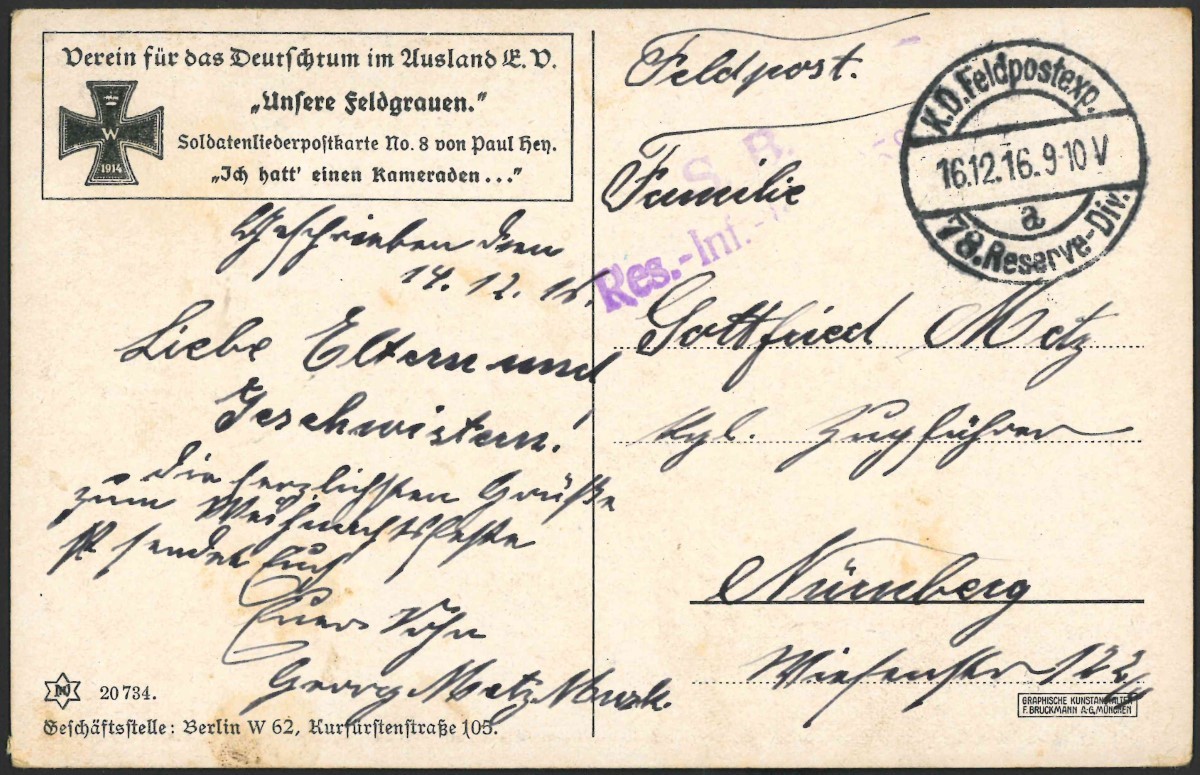 Verein für das Deutschtum im Ausland E. V.
„Unsere Feldgrauen."
Soldatenliederpostkarte No. 8 von Paul Hey.
„Ich hatt' einen Kameraden..."
W
1914
Geschrieben den
14. 12. 16.
Liebe Eltern und
Geschwistern!
Die herzlichsten Grüße
zum Weihnachtsfeste
sendet Euch
Euer Sohn
Georg Metz
20734.
Geschäftsstelle: Berlin W 62, Kurfürstenstraße 105.
Feldpost.
K.D. Feldpostexp.
16.12.16.9-10 V
a
78. Reserve-Div.
S. B.
Res.-Inf.-
Familie
Gottfried Metz
Kgl. Zugführer
Nürnberg
Wiesenstr 122
GRAPHISCHE KUNSTANSTALTEN
F. BRUCKMANN A.G. MÜNCHEN